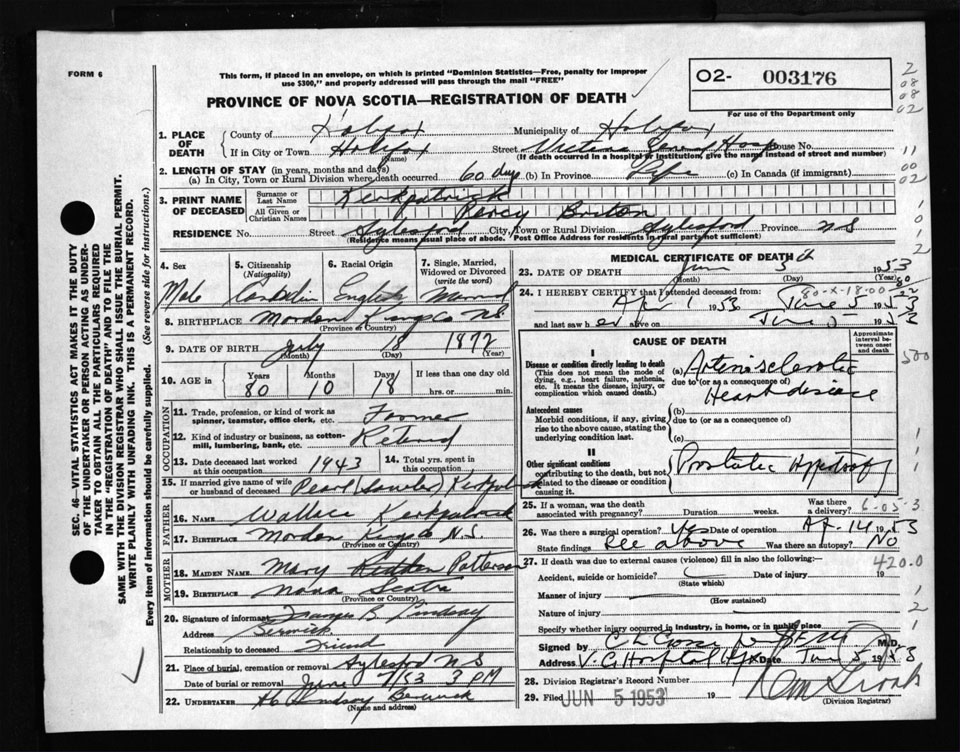 FORM 6
This form, if placed in an envelope, on which is printed "Dominion Statistics—Free, penalty for improper
use $300," and properly addressed will pass through the mail "FREE"
PROVINCE OF NOVA SCOTIA—REGISTRATION OF DEATH
02- 003176
For use of the Department only
1. PLACE OF DEATH
County of Halifax Municipality of Halifax
If in City or Town Halifax Street Victoria General Hosp House No.
(Name) (If death occurred in a hospital or institution, give the name instead of street and number)
2. LENGTH OF STAY (in years, months and days)
(a) In City, Town or Rural Division where death occurred 60 days (b) In Province Life (c) In Canada (if immigrant)
3. PRINT NAME OF DECEASED
Surname or Last Name Kirkpatrick
All Given or Christian Names Percy Briton
RESIDENCE No. Street Aylesford City, Town or Rural Division Aylesford Province NS
(Residence means usual place of abode. Post Office Address for residents in rural parts not sufficient)
4. Sex
Male
5. Citizenship
(Nationality)
Canadian
6. Racial Origin
English
7. Single, Married, Widowed or Divorced
(write the word)
Married
8. BIRTHPLACE Morden Kings Co NS
(Province or Country)
9. DATE OF BIRTH July 18 1872
(Month) (Day) (Year)
10. AGE in
Years Months Days If less than one day old
80 10 18 hrs. or min.
OCCUPATION
11. Trade, profession, or kind of work as
spinner, teamster, office clerk, etc. Farmer
12. Kind of industry or business, as cotton-
mill, lumbering, bank, etc. Retired
13. Date deceased last worked
at this occupation 1943
14. Total yrs. spent in
this occupation
15. If married give name of wife
or husband of deceased Pearl (Sawler) Kirkpatrick
FATHER
16. NAME Wallace Kirkpatrick
17. BIRTHPLACE Morden Kings Co N.S.
(Province or Country)
MOTHER
18. MAIDEN NAME Mary Patterson
19. BIRTHPLACE Nova Scotia
(Province or Country)
20. Signature of informant Frances B. Lindsay
Address Berwick
Relationship to deceased Friend
21. Place of burial, cremation or removal Aylesford NS
Date of burial or removal June 7/53 3 PM
22. UNDERTAKER Lindsay Berwick
(Name and address)
MEDICAL CERTIFICATE OF DEATH
23. DATE OF DEATH June 5th 1953
(Month) (Day) (Year)
24. I HEREBY CERTIFY that I attended deceased from:
80-X-18-00
Apr 1 1953 June 5 1953
and last saw h alive on June 5 1953
CAUSE OF DEATH
Approximate interval between onset and death
I
Disease or condition directly leading to death
(This does not mean the mode of dying, e.g., heart failure, asthenia, etc. It means the disease, injury, or complication which caused death.)
(a) Arteriosclerotic
due to (or as a consequence of)
Heart disease
Antecedent causes
Morbid conditions, if any, giving rise to the above cause, stating the underlying condition last.
(b)
due to (or as a consequence of)
(c)
II
Other significant conditions
contributing to the death, but not related to the disease or condition causing it.
Prostatic Hypertrophy
25. If a woman, was the death
associated with pregnancy? Duration weeks. Was there a delivery?
6-05-3
26. Was there a surgical operation? Yes Date of operation Ap-14 1953
State findings See above Was there an autopsy? No
27. If death was due to external causes (violence) fill in also the following:
420.0
Accident, suicide or homicide? Date of injury 19
(State which)
Manner of injury
(How sustained)
Nature of injury
Specify whether injury occurred in industry, in home, or in public place
Signed by M.D.
Address V.G. Hospital Hfx Date June 5 1953
28. Division Registrar's Record Number
29. Filed JUN 5 1953 19
(Division Registrar)
SEC. 46—VITAL STATISTICS ACT MAKES IT THE DUTY
OF THE UNDERTAKER OR PERSON ACTING AS UNDER-
TAKER TO OBTAIN ALL THE PARTICULARS REQUIRED
IN THE "REGISTRATION OF DEATH" AND TO FILE THE
SAME WITH THE DIVISION REGISTRAR WHO SHALL ISSUE THE BURIAL PERMIT.
WRITE PLAINLY WITH UNFADING INK. THIS IS A PERMANENT RECORD.
Every item of information should be carefully supplied. (See reverse side for instructions.)